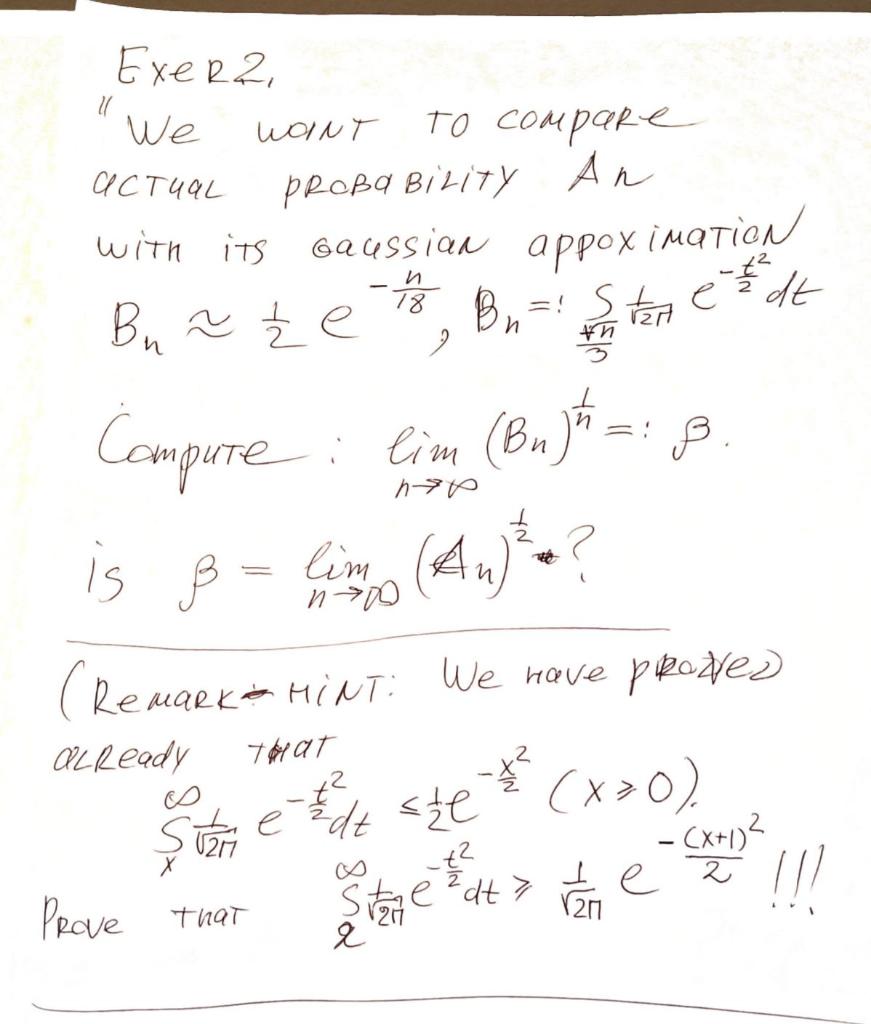 Exer2.
"We want to compare
actual probability An
with its Gaussian appoximation
Bn ≈ 1/2 e^(-n/18), Bn =: ∫_(√n/3) 1/√2π e^(-t²/2) dt
Compute: lim_(n→∞) (Bn)^(1/n) =: β.
is β = lim_(n→∞) (An)^(1/2) ?
(Remark - HINT: We have proved
already that
∫_x^∞ 1/√2π e^(-t²/2) dt ≤ 1/2 e^(-x²/2) (x ≥ 0).
Prove that ∫_2^∞ 1/√2π e^(-t²/2) dt ≥ 1/√2π e^(-(x+1)²/2) !!!